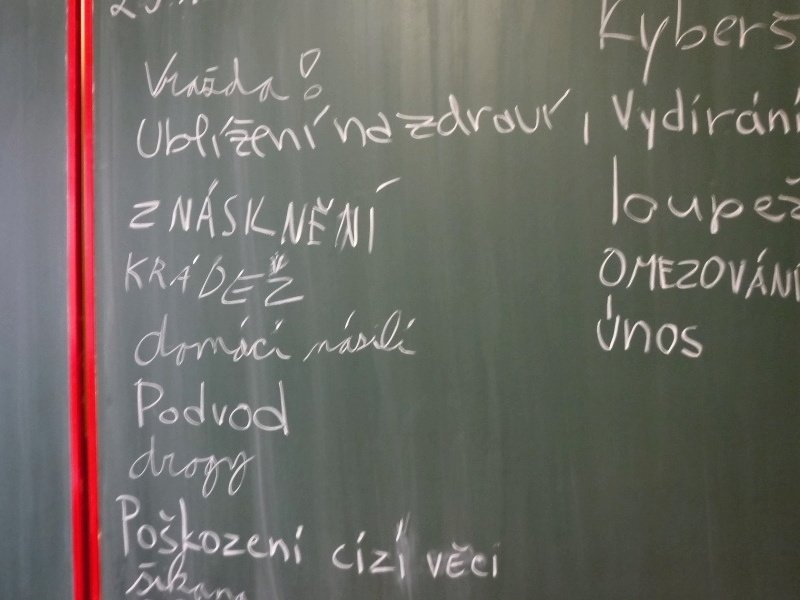 Vražda!
Ublížení na zdraví,
ZNÁSKNĚNÍ
KRÁDEŽ
domácí násilí
Podvod
drogy
Poškození cizí věci
šikan
Kyberš
Vydírání
loupež
OMEZOVÁNÍ
únos